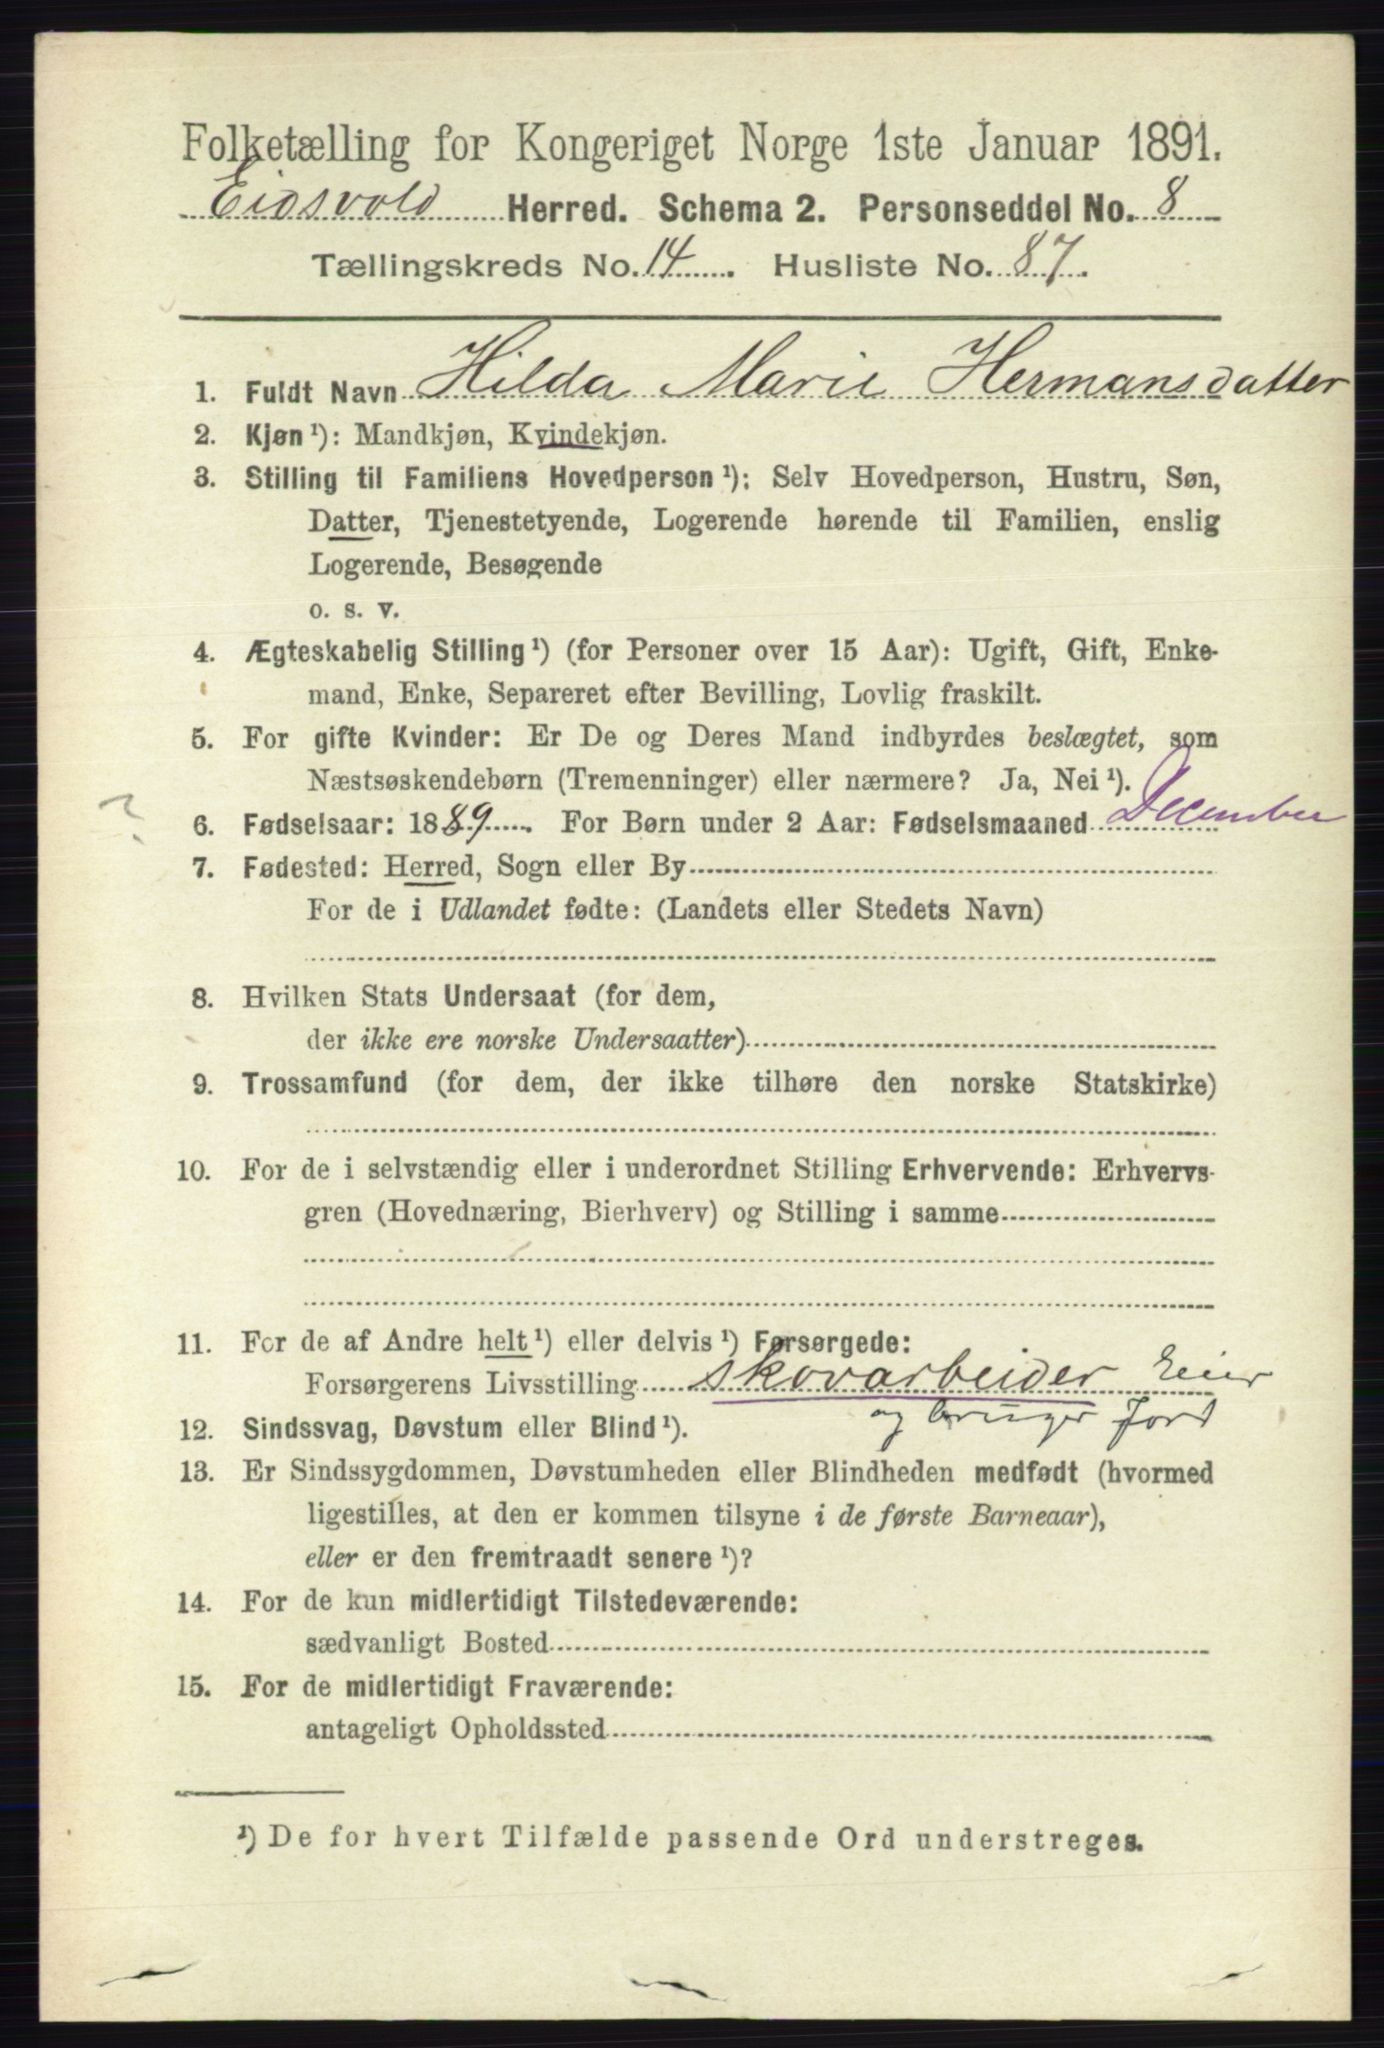 Folketælling for Kongeriget Norge 1ste Januar 1891.
Eidsvold Herred. Schema 2. Personseddel No. 8
Tællingskreds No. 14. Husliste No. 87.
1. Fuldt Navn Hilda Marie Hermansdatter
2. Kjøn ¹): Mandkjøn, Kvindekjøn.
3. Stilling til Familiens Hovedperson ¹): Selv Hovedperson, Hustru, Søn,
Datter, Tjenestetyende, Logerende hørende til Familien, enslig
Logerende, Besøgende
o. s. v.
4. Ægteskabelig Stilling ¹) (for Personer over 15 Aar): Ugift, Gift, Enke-
mand, Enke, Separeret efter Bevilling, Lovlig fraskilt.
5. For gifte Kvinder: Er De og Deres Mand indbyrdes beslægtet, som
Næstsøskendebørn (Tremenninger) eller nærmere? Ja, Nei ¹).
? 6. Fødselsaar: 1889. For Børn under 2 Aar: Fødselsmaaned December
7. Fødested: Herred, Sogn eller By
For de i Udlandet fødte: (Landets eller Stedets Navn)
8. Hvilken Stats Undersaat (for dem,
der ikke ere norske Undersaatter)
9. Trossamfund (for dem, der ikke tilhøre den norske Statskirke)
10. For de i selvstændig eller i underordnet Stilling Erhvervende: Erhvervs-
gren (Hovednæring, Bierhverv) og Stilling i samme
11. For de af Andre helt ¹) eller delvis ¹) Forsørgede:
Forsørgerens Livsstilling skovarbeider Eier
og bruger Jord
12. Sindssvag, Døvstum eller Blind ¹).
13. Er Sindssygdommen, Døvstumheden eller Blindheden medfødt (hvormed
ligestilles, at den er kommen tilsyne i de første Barneaar),
eller er den fremtraadt senere ¹)?
14. For de kun midlertidigt Tilstedeværende:
sædvanligt Bosted
15. For de midlertidigt Fraværende:
antageligt Opholdssted
¹) De for hvert Tilfælde passende Ord understreges.